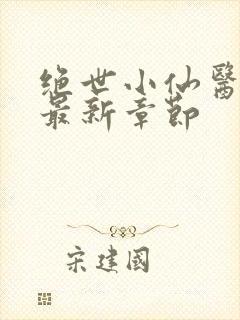 绝世小仙醫
最新章節
宋建國